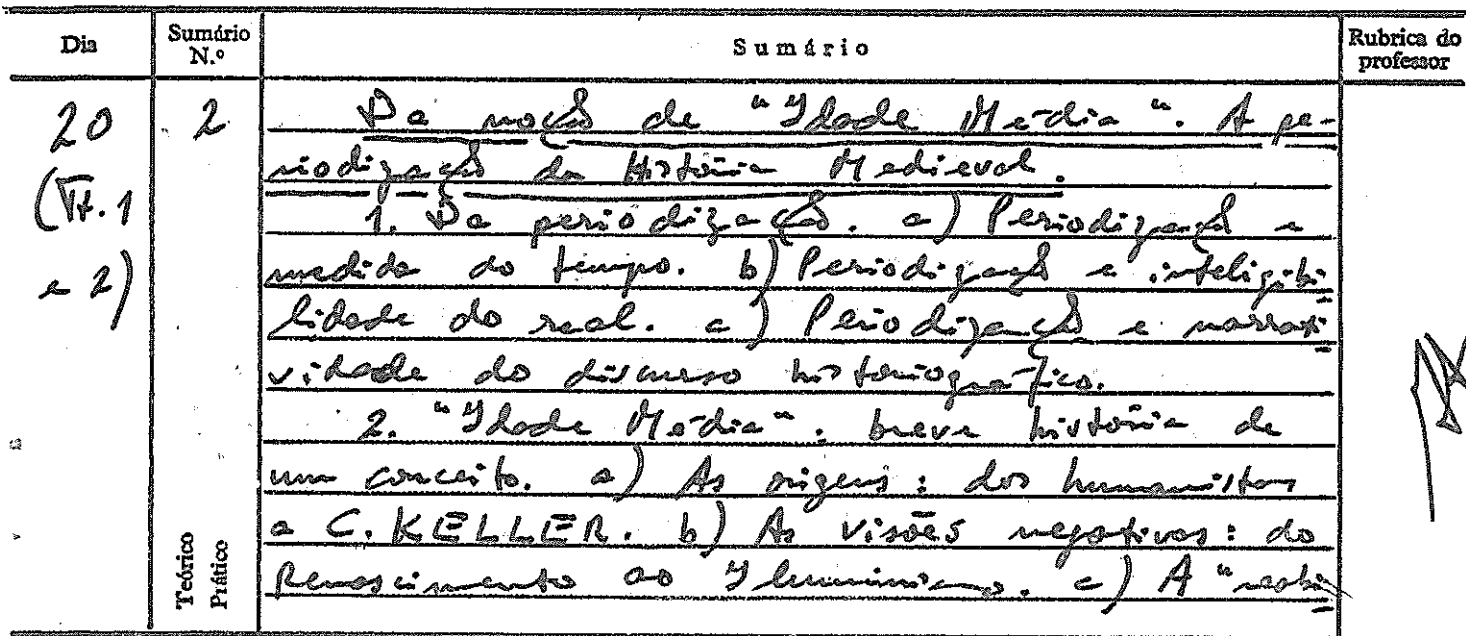 Dia Sumário N.º Sumário Rubrica do professor
20 2 Da noção de "Idade Média". A pe-
riodização da História Medieval.
(Tt. 1 1. Da periodização. a) Periodização e
e 2) medida do tempo. b) Periodização e inteligibi-
lidade do real. c) Periodização e narrati-
vidade do discurso historiográfico.
2. "Idade Média": breve história de
um conceito. a) As origens: dos humanistas
a C. KELLER. b) As visões negativas: do
Renascimento ao Iluminismo. c) A "reabi-
Teórico
Prático